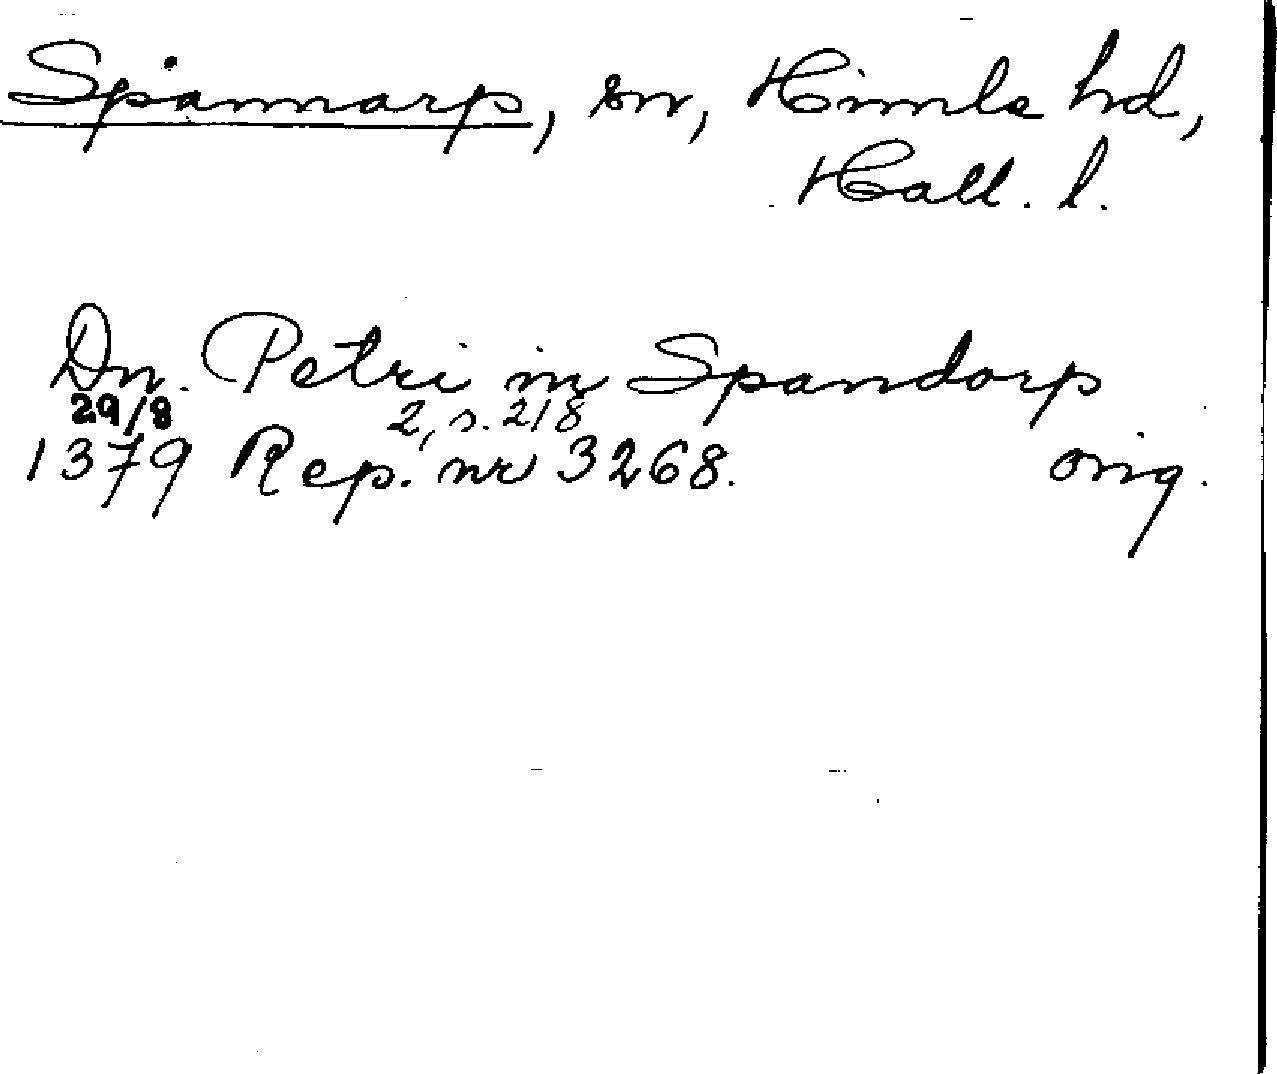 Spannarp, sn, Himle hd,
Hall. l.
Dn. Petri in Spandorp
29/8 2, s. 218
1379 Rep. nr 3268. orig.